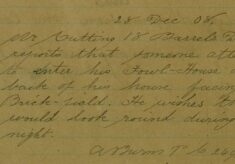 28 Dec 08.
Mr Cuttins 18 Barrels F
reports that someone att
to enter his Fowl-House a
back of his house facing
Brick-field. He wishes t
would look round during
night.
A Burns P.C. 26